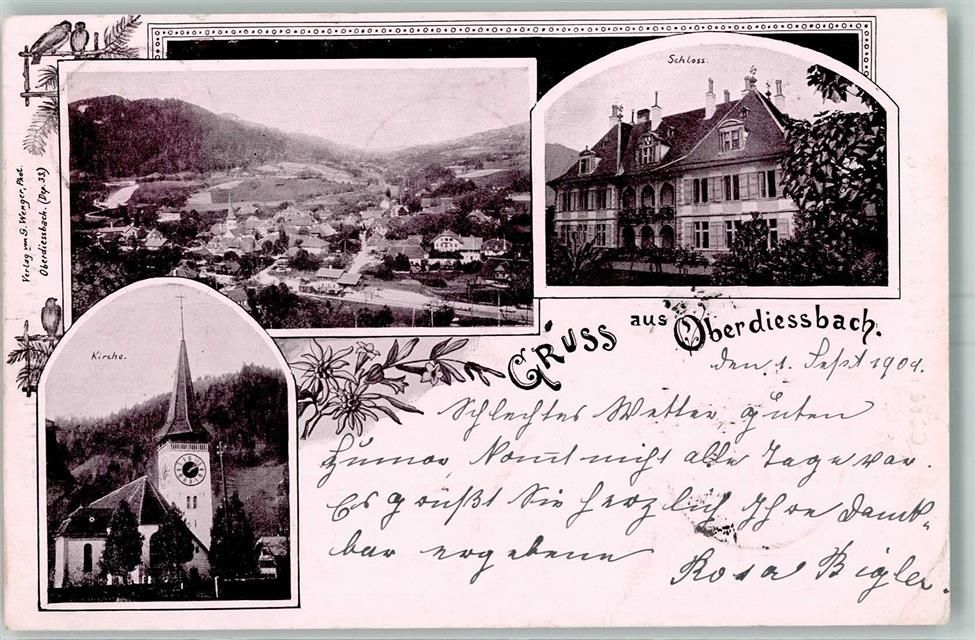 Schloss.
Verlag von G. Wenger, Phot.
Oberdiessbach. (Dep. 33)
Kirche.
Gruss aus Oberdiessbach.
den 1. Sept 1904.
Schlechtes Wetter, guten
Humor, Komt nicht alle Tage vor.
Es grüßt Sie herzlich Ihre dank-
bar ergebene
Rosa Bigler.